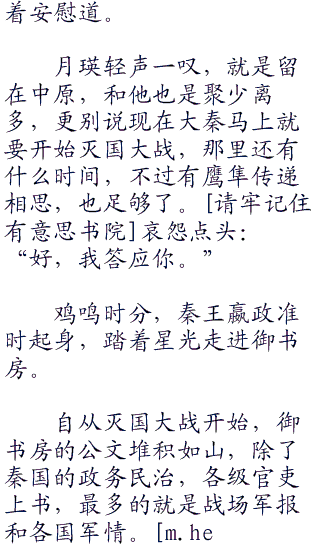 着安慰道。
月瑛轻声一叹，就是留
在中原，和他也是聚少离
多，更别说现在大秦马上就
要开始灭国大战，那里还有
什么时间，不过有鹰隼传递
相思，也足够了。[请牢记住
有意思书院]哀怨点头：
“好，我答应你。”
鸡鸣时分，秦王嬴政准
时起身，踏着星光走进御书
房。
自从灭国大战开始，御
书房的公文堆积如山，除了
秦国的政务民治，各级官吏
上书，最多的就是战场军报
和各国军情。[m.he